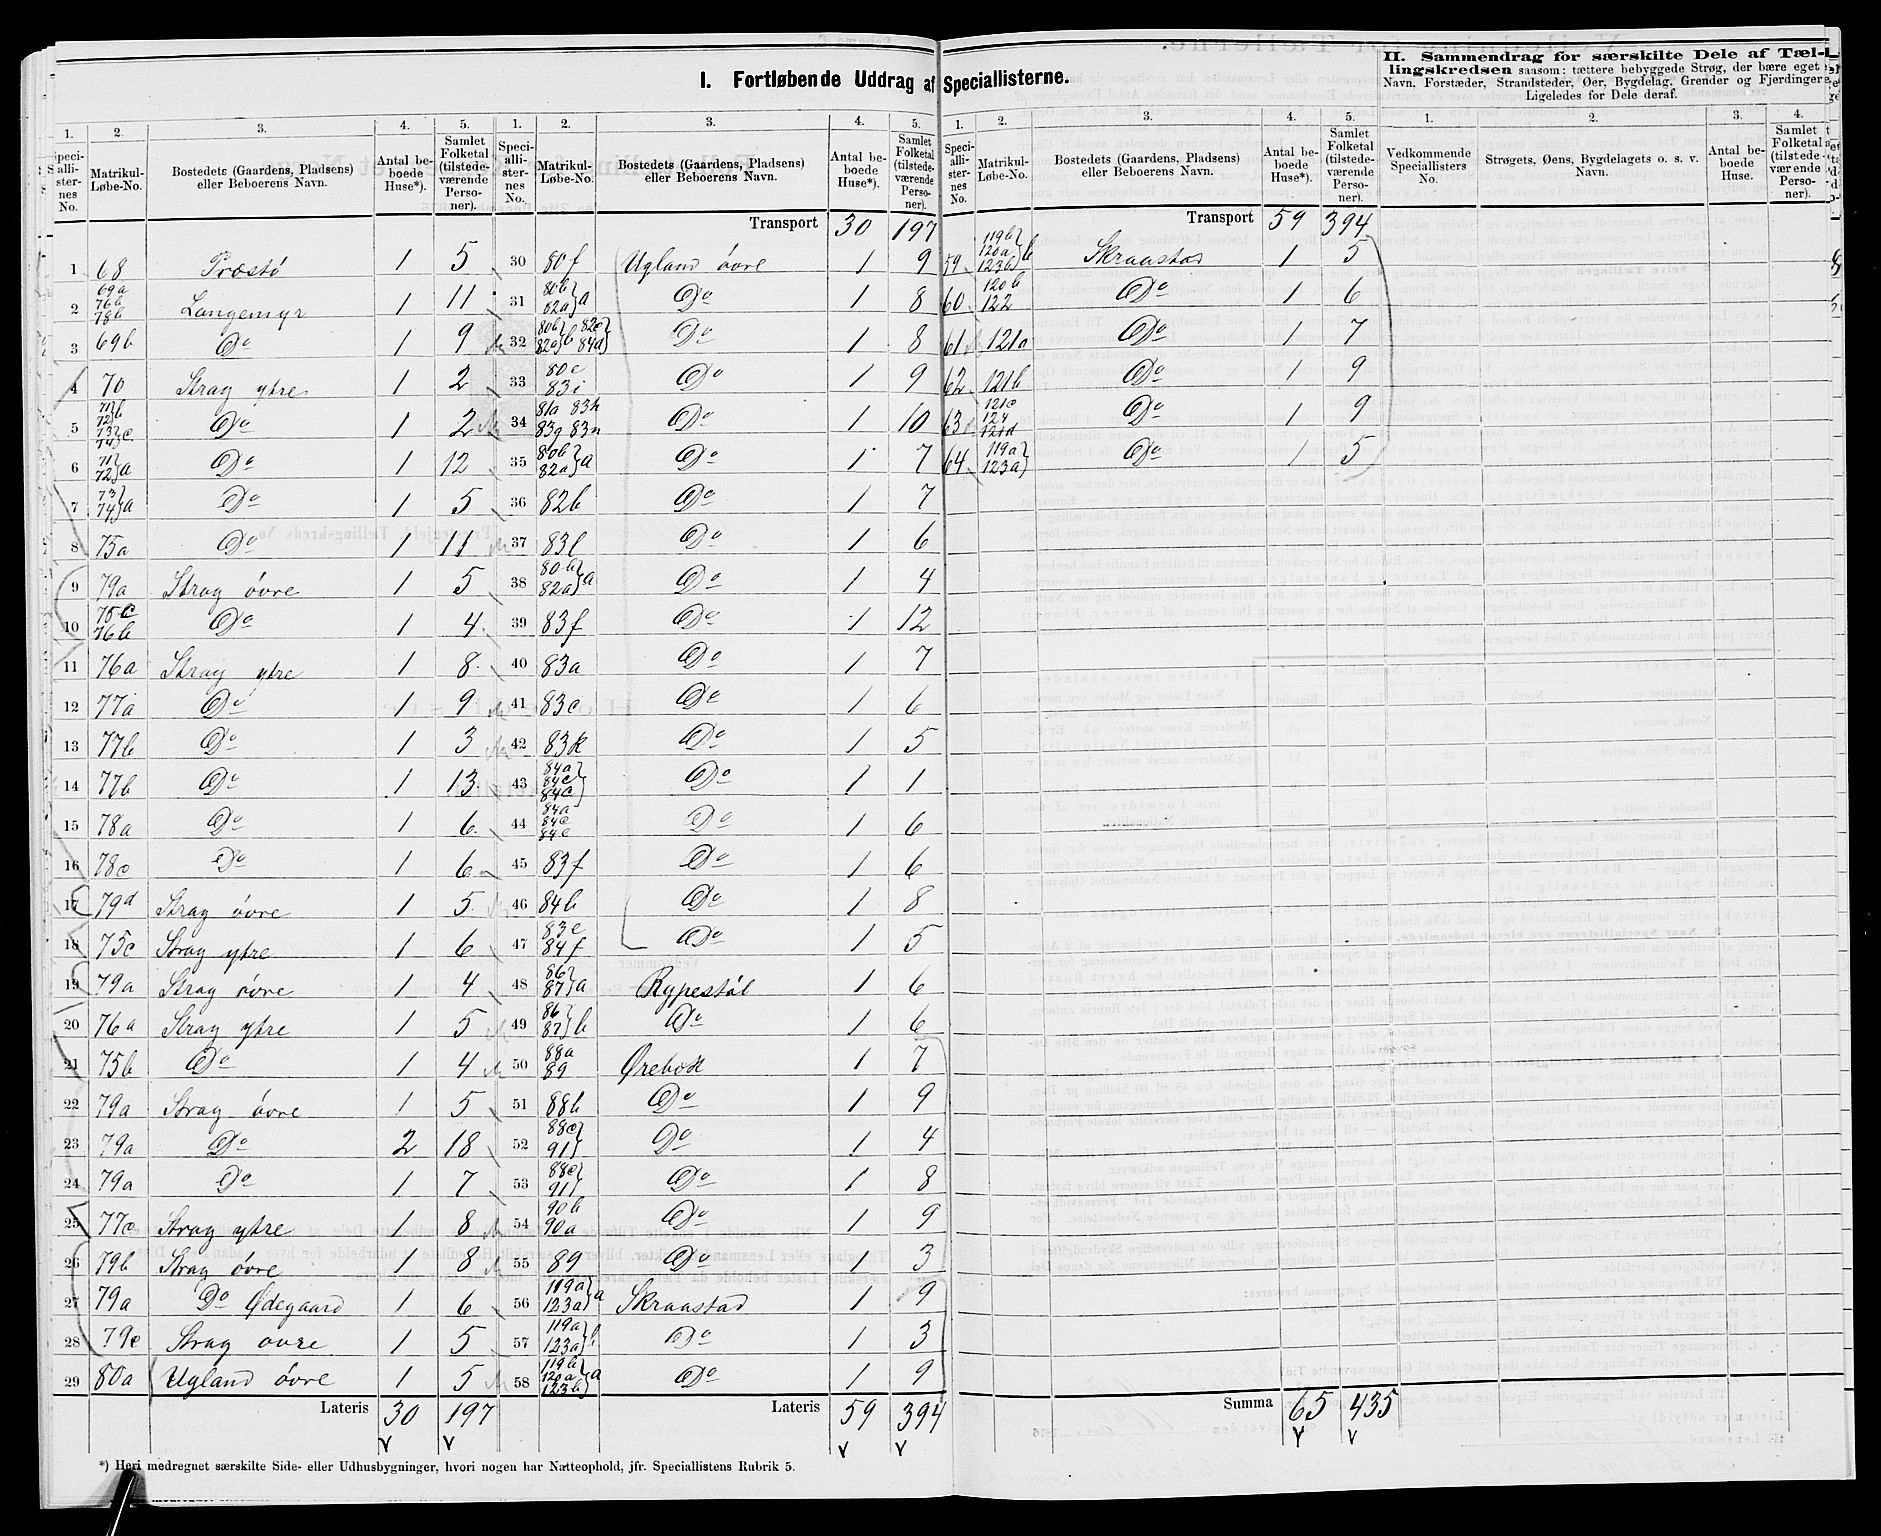 I. Fortløbende Uddrag af Speciallisterne.
II. Sammendrag for særskilte Dele af Tællingskredsen saasom: tættere bebyggede Strøg, der bære eget Navn, Forstæder, Strandsteder, Øer, Bygdelag, Grender og Fjerdinger. Ligeledes for Dele deraf.
1. 2. 3. 4. 5.
Speciallisternes No. Matrikul-Løbe-No. Bostedets (Gaardens, Pladsens) eller Beboerens Navn. Antal beboede Huse*). Samlet Folketal (tilstedeværende Personer).
1 68 Præstø 1 5
2 69a 76b 78b Langemyr 1 11
3 69b Do 1 9
4 70 Strag ytre 1 2
5 71b 72 73 74 c Do 1 2
6 71 72 a Do 1 12
7 73 74 a Do 1 5
8 75a Do 1 11
9 79a Strag övre 1 5
10 75c 76b Do 1 4
11 76a Strag ytre 1 8
12 77a Do 1 9
13 77b Do 1 3
14 77b Do 1 13
15 78a Do 1 6
16 78c Do 1 6
17 79d Strag övre 1 5
18 75c Strag ytre 1 6
19 79a Strag övre 1 4
20 76a Strag ytre 1 5
21 75b Do 1 4
22 79a Strag övre 1 5
23 79a Do 2 18
24 79a Do 1 7
25 77c Strag ytre 1 8
26 79b Strag övre 1 8
27 79a Do Ødegaard 1 6
28 79c Strag ovre 1 5
29 80a Ugland övre 1 5
Lateris 30 197
*) Heri medregnet særskilte Side- eller Udhusbygninger, hvori nogen har Natteophold, jfr. Speciallistens Rubrik 5.
1. 2. 3. 4. 5.
Speciallisternes No. Matrikul-Løbe-No. Bostedets (Gaardens, Pladsens) eller Beboerens Navn. Antal beboede Huse*). Samlet Folketal (tilstedeværende Personer).
Transport 30 197
30 80f Ugland övre 1 9
31 80b 82a a Do 1 8
32 80b 82a b 82c 84d Do 1 8
33 80c 83i Do 1 9
34 81a 83h 83g 83n Do 1 10
35 80b 82a a Do 1 7
36 82b Do 1 7
37 83l Do 1 6
38 80b 82a a Do 1 4
39 83f Do 1 12
40 83a Do 1 7
41 83c Do 1 6
42 83k Do 1 5
43 84a 84c 84c Do 1 1
44 84a 84c 84c Do 1 6
45 83f Do 1 6
46 84b Do 1 8
47 83e 84f Do 1 5
48 86 87 a Rypestöl 1 6
49 86 87 b Do 1 6
50 88a 89 Ørebek 1 7
51 88b Do 1 9
52 88c 91 Do 1 4
53 88c 91 Do 1 8
54 90b 90a Do 1 9
55 89 Do 1 3
56 119a 123a a Skraastad 1 9
57 119a 123a b Do 1 3
58 119b 120a 123b a Do 1 9
Lateris 59 394
1. 2. 3. 4. 5.
Speciallisternes No. Matrikul-Løbe-No. Bostedets (Gaardens, Pladsens) eller Beboerens Navn. Antal beboede Huse*). Samlet Folketal (tilstedeværende Personer).
Transport 59 394
59 119b 120a 123b b Skraastad 1 5
60 120b 122 Do 1 6
61 121a Do 1 7
62 121b Do 1 9
63 121c 124 121d Do 1 9
64 119a 123a Do 1 5
Summa 65 435
1. 2. 3. 4.
Vedkommende Speciallisters No. Strøgets, Øens, Bygdelagets o. s. v. Navn. Antal beboede Huse. Samlet Folketal (tilstedeværende Personer).